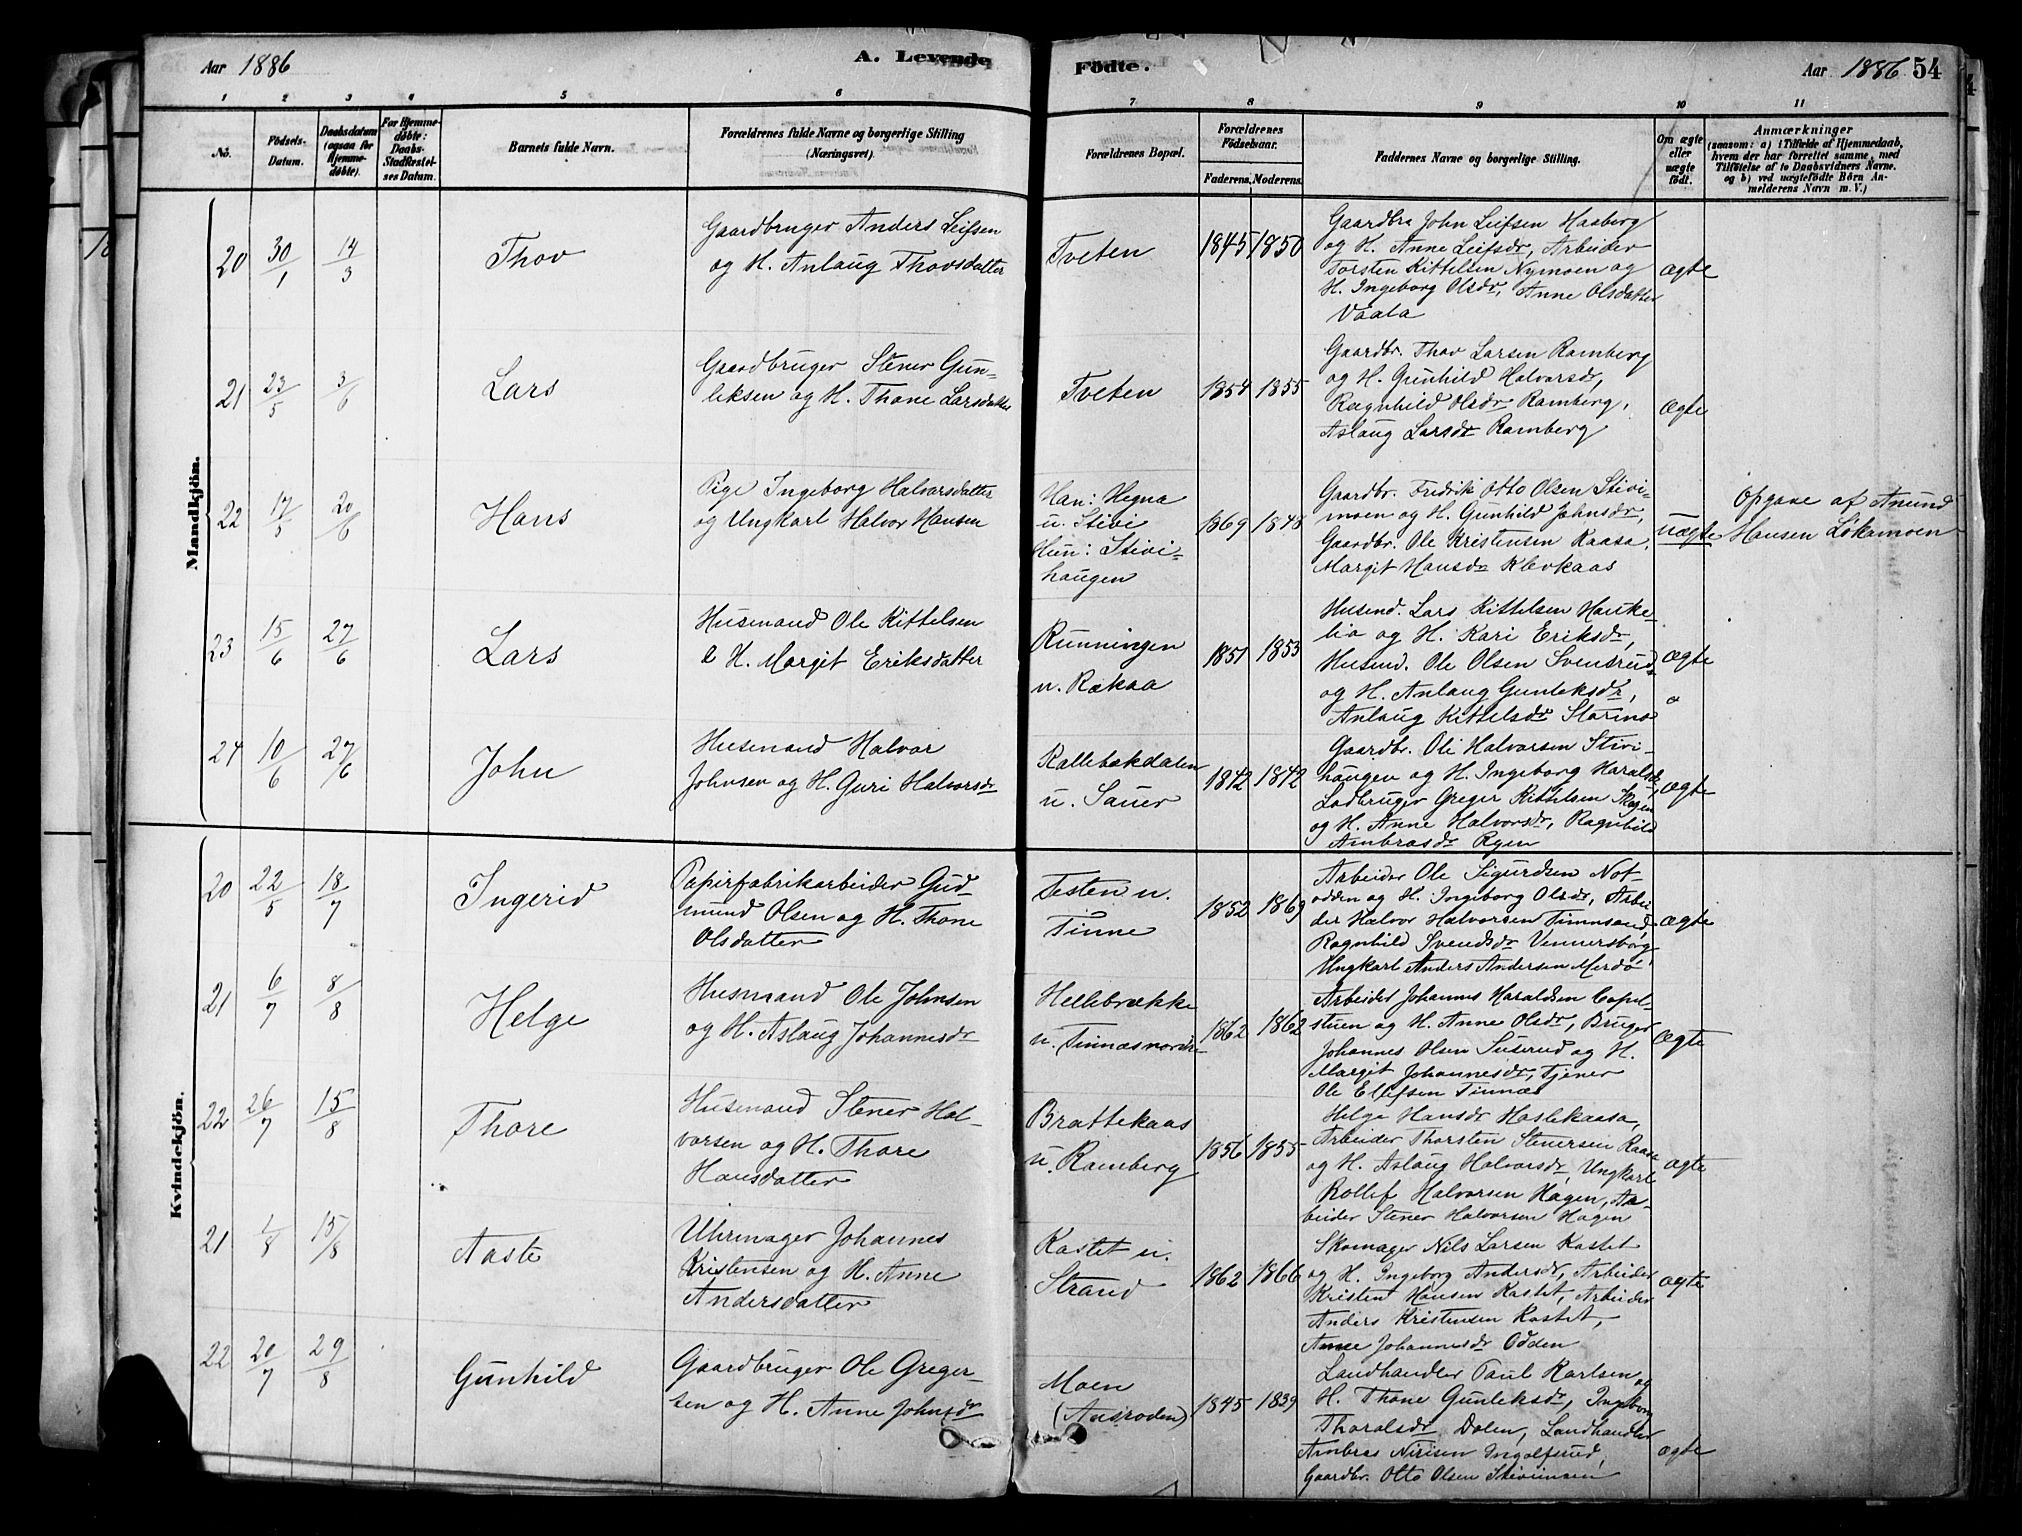 Aar 1886
A. Levende Födte.
Aar 1886 54
1 2 3 4 5 6 7 8 9 10 11
No.
Födsels-Datum.
Daabsdatum (ogsaa for Hjemme-döbte).
For Hjemme-döbte: Daabs-Stadfæstel-ses Datum.
Barnets fulde Navn.
Forældrenes fulde Navne og borgerlige Stilling (Næringsvei).
Forældrenes Bopæl.
Forældrenes Födselsaar.
Faderens. Moderens.
Faddernes Navne og borgerlige Stilling.
Om ægte eller uægte födt.
Anmærkninger
(saasom: a) i Tilfælde af Hjemmedaab, hvem der har forrettet samme, med Tilföielse af to Daabsvidners Navne. og b) ved uægtefödte Börn An-melderens Navn m. V.)
Mandkjön.
20 30/1 14/3 Thov
Gaardbruger Anders Leifsen
og H. Anlaug Thovsdatter
Tveten
1845 1850
Gaardbr John Leifsen Haaberg
og H. Anne Leifsdr, Arbeider
Torsten Kittelsen Nymoen og
H. Ingeborg Olsdr, Anne Olsdatter
Vaala
ægte
21 23/5 3/6 Lars
Gaardbruger Stener Gun-
leksen og H. Thone Larsdatter
Tveten
1854 1855
Gaardbr. Thov Larsen Ramberg
og H. Gunhild Halvorsdr,
Ragnhild Olsdr Ramberg,
Aslaug Larsdr Ramberg
ægte
22 17/5 20/6 Hans
Pige Ingeborg Halvorsdatter
og Ungkarl Halvor Hansen
Han: Hegna
u. Stivi
Hun: Stivi-
haugen
1869 1848
Gaardbr. Fredrik Otto Olsen Stivi-
moen og H. Gunhild Johnsdr,
Gaardbr. Ole Kristensen Kaasa,
Margit Hansdr Klevkaas
uægte
Opgave af Anund
Hansen Løkamoen
23 15/6 27/6 Lars
Husmand Ole Kittelsen
& H. Margit Eriksdatter
Runningen
u. Rækaa
1851 1853
Husmd. Lars Kittelsen Hauke-
lia og H. Kari Eriksdr,
Husmd. Ole Olsen Svensrud
og H. Anlaug Gunleksdr,
Anlaug Kittelsdr Starmo
ægte
24 10/6 27/6 John
Husmand Halvor
Johnsen og H. Guri Halvorsdr
Kallebækdalen
u. Sauer
1842 1842
Gaardbr. Ole Halvorsen Stivi-
haugen og H. Ingeborg Haralsdr,
Lodbruger Greger Kittelsen Skogen
og H. Anne Halvorsdr, Ragnhild
Ambrosdr Ryen
ægte
Kvindekjön.
20 22/5 18/7 Ingerid
Papirfabrikarbeider Gud-
mund Olsen og H. Thone
Olsdatter
Testen u.
Tinne
1852 1869
Arbeider Ole Sigurdsen Not-
odden og H. Ingeborg Olsdr, Arbei-
der Halvor Halvorsen Tinnesand,
Ragnhild Svendsdr Vennersborg,
Ungkarl Anders Andersen Merdø
ægte
21 6/7 8/8 Helge
Husmand Ole Johnsen
og H. Aslaug Johannesdr
Hellebrække
u. Tinnæsnordr
1862 1862
Arbeider Johannes Haraldsen Copel-
stuen og H. Anne Olsdr, Bruger
Johannes Olsen Suserud og H.
Margit Johannesdr, Tjener
Ole Ellefsen Tinnæs
ægte
22 26/7 15/8 Thore
Husmand Stener Hal-
vorsen og H. Thore
Hansdatter
Brattekaas
u. Ramberg
1856 1855
Helge Hansdr Haslekaasa,
Arbeider Thorsten Stenersen Kaasa
og H. Aslaug Halvorsdr, Ungkarl
Rollef Halvorsen Hagen, Ar-
beider Stener Halvorsen Hagen
ægte
21 1/8 15/8 Aaste
Uhrmager Johannes
Kristensen og H. Anne
Andersdatter
Kastet u.
Strand
1862 1866
Skomager Nils Larsen Kastet
og H. Ingeborg Andersdr, Arbeider
Kristen Hansen Kastet, Arbeider
Anders Kristensen Kastet,
Anne Johannesdr Odden
ægte
22 20/7 29/8 Gunhild
Gaardbruger Ole Greger-
sen og H. Anne Johnsdr
Moen
1845 1839
Landhandler Paul Karlsen og
H. Thone Gunleksdr, Ingeborg
Thoralsdr Dalen, Landhandler
Ambros Nirisen Ingolfsrud,
Gaardbr. Otto Olsen
ægte